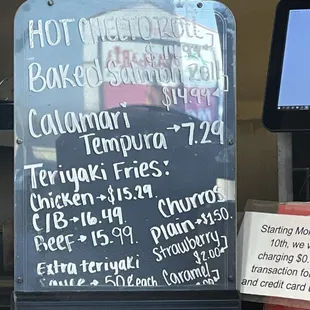 HOT CHEETO ROLL
Baked Salmon Roll
$14.99
Calamari
Tempura → 7.29
Teriyaki Fries:
Chicken → $15.29
C/B → 16.49
Beef → 15.99.
Extra teriyaki
Sauce → 50¢ each
Churros
Plain → $1.50
Strawberry
$2.00
Caramel
Starting Mo
10th, we w
charging $0.
transaction fo
and credit card